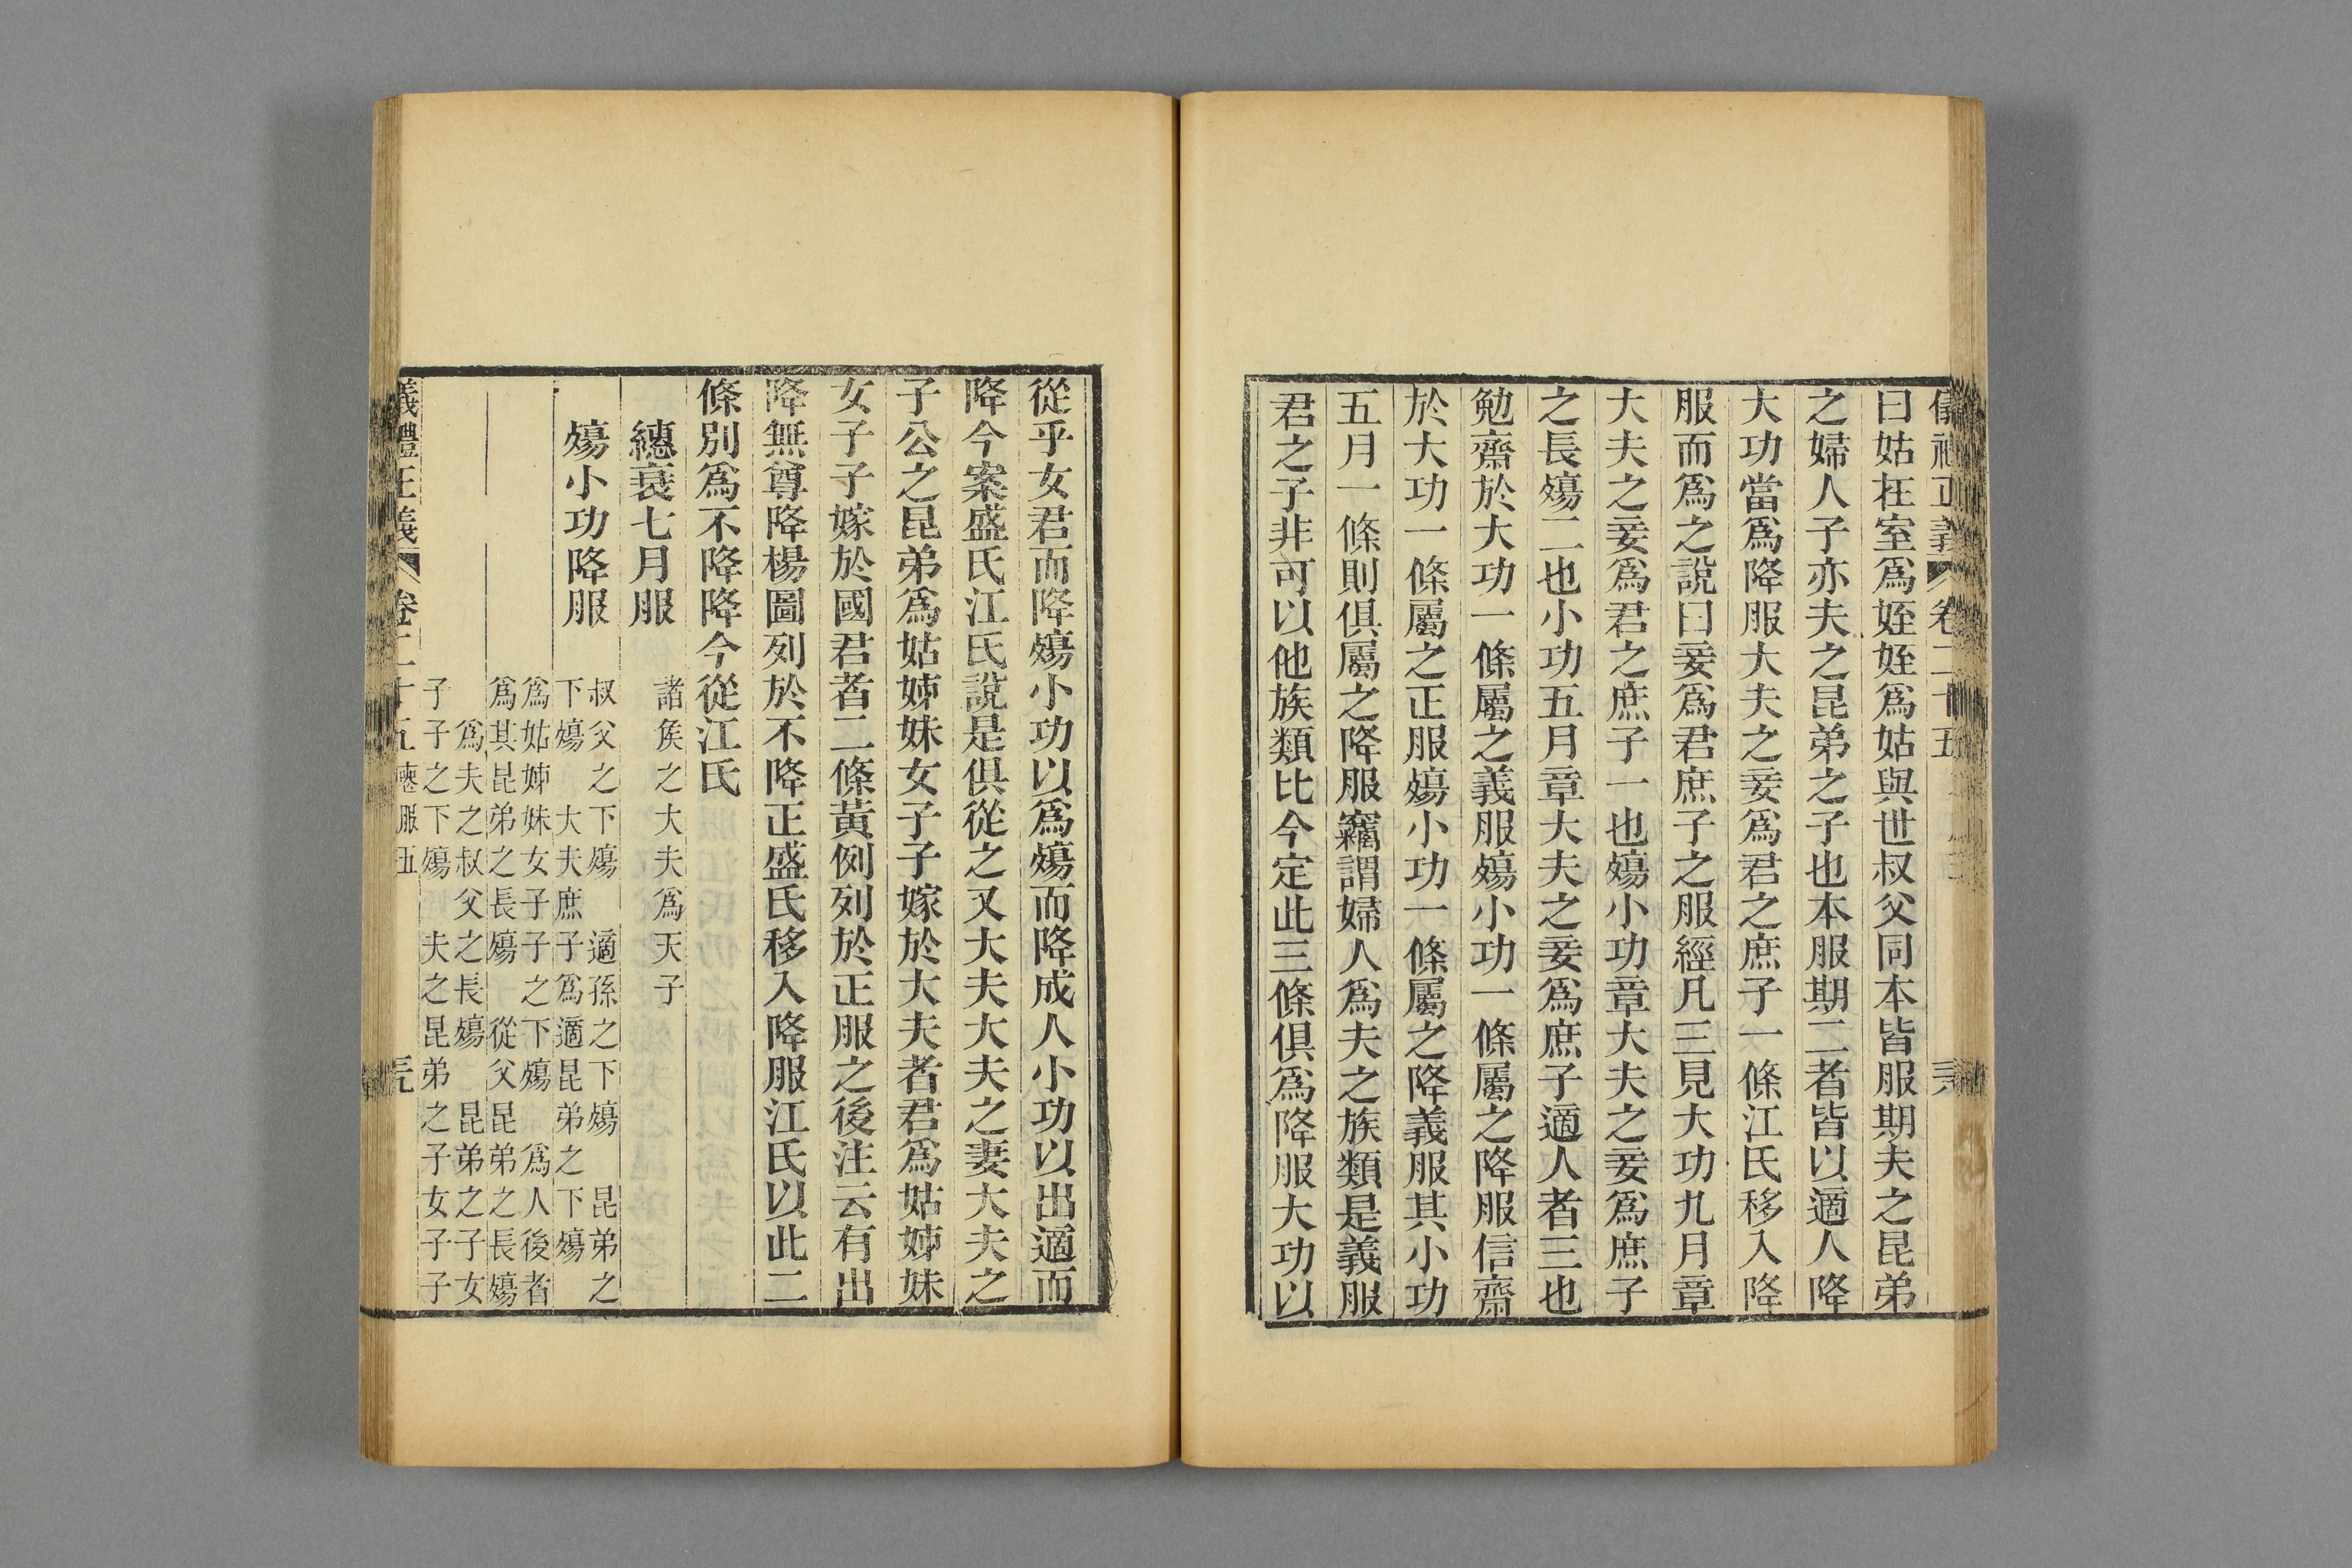 曰姑在室爲姪姪爲姑與世叔父同本皆服期夫之昆弟
之婦人子亦夫之昆弟之子也本服期二者皆以適人降
大功當爲降服大夫之妾爲君之庶子一條江氏移入降
服而爲之說曰妾爲君庶子之服經凡三見大功九月章
大夫之妾爲君之庶子一也殤小功章大夫之妾爲庶子
之長殤二也小功五月章大夫之妾爲庶子適人者三也
勉齋於大功一條屬之義服殤小功一條屬之降服信齋
於大功一條屬之正服殤小功一條屬之降義服其小功
五月一條則俱屬之降服竊謂婦人爲夫之族類是義服
君之子非可以他族類比今定此三條俱爲降服大功以
從乎女君而降殤小功以爲殤而降成人小功以出適而
降今案盛氏江氏說是俱從之又大夫大夫之妻大夫之
子公之昆弟爲姑姊妹女子子嫁於大夫者君爲姑姊妹
女子子嫁於國君者二條黃例列於正服之後注云有出
降無尊降楊圖列於不降正盛氏移入降服江氏以此二
條別爲不降降今從江氏
繐衰七月服
諸侯之大夫爲天子
殤小功降服
叔父之下殤 適孫之下殤 昆弟之
下殤 大夫庶子爲適昆弟之下殤
爲姑姊妹女子子之下殤 爲人後者
爲其昆弟之長殤 從父昆弟之長殤
爲夫之叔父之長殤 昆弟之子女
子子之下殤 夫之昆弟之子女子子
卷二十五